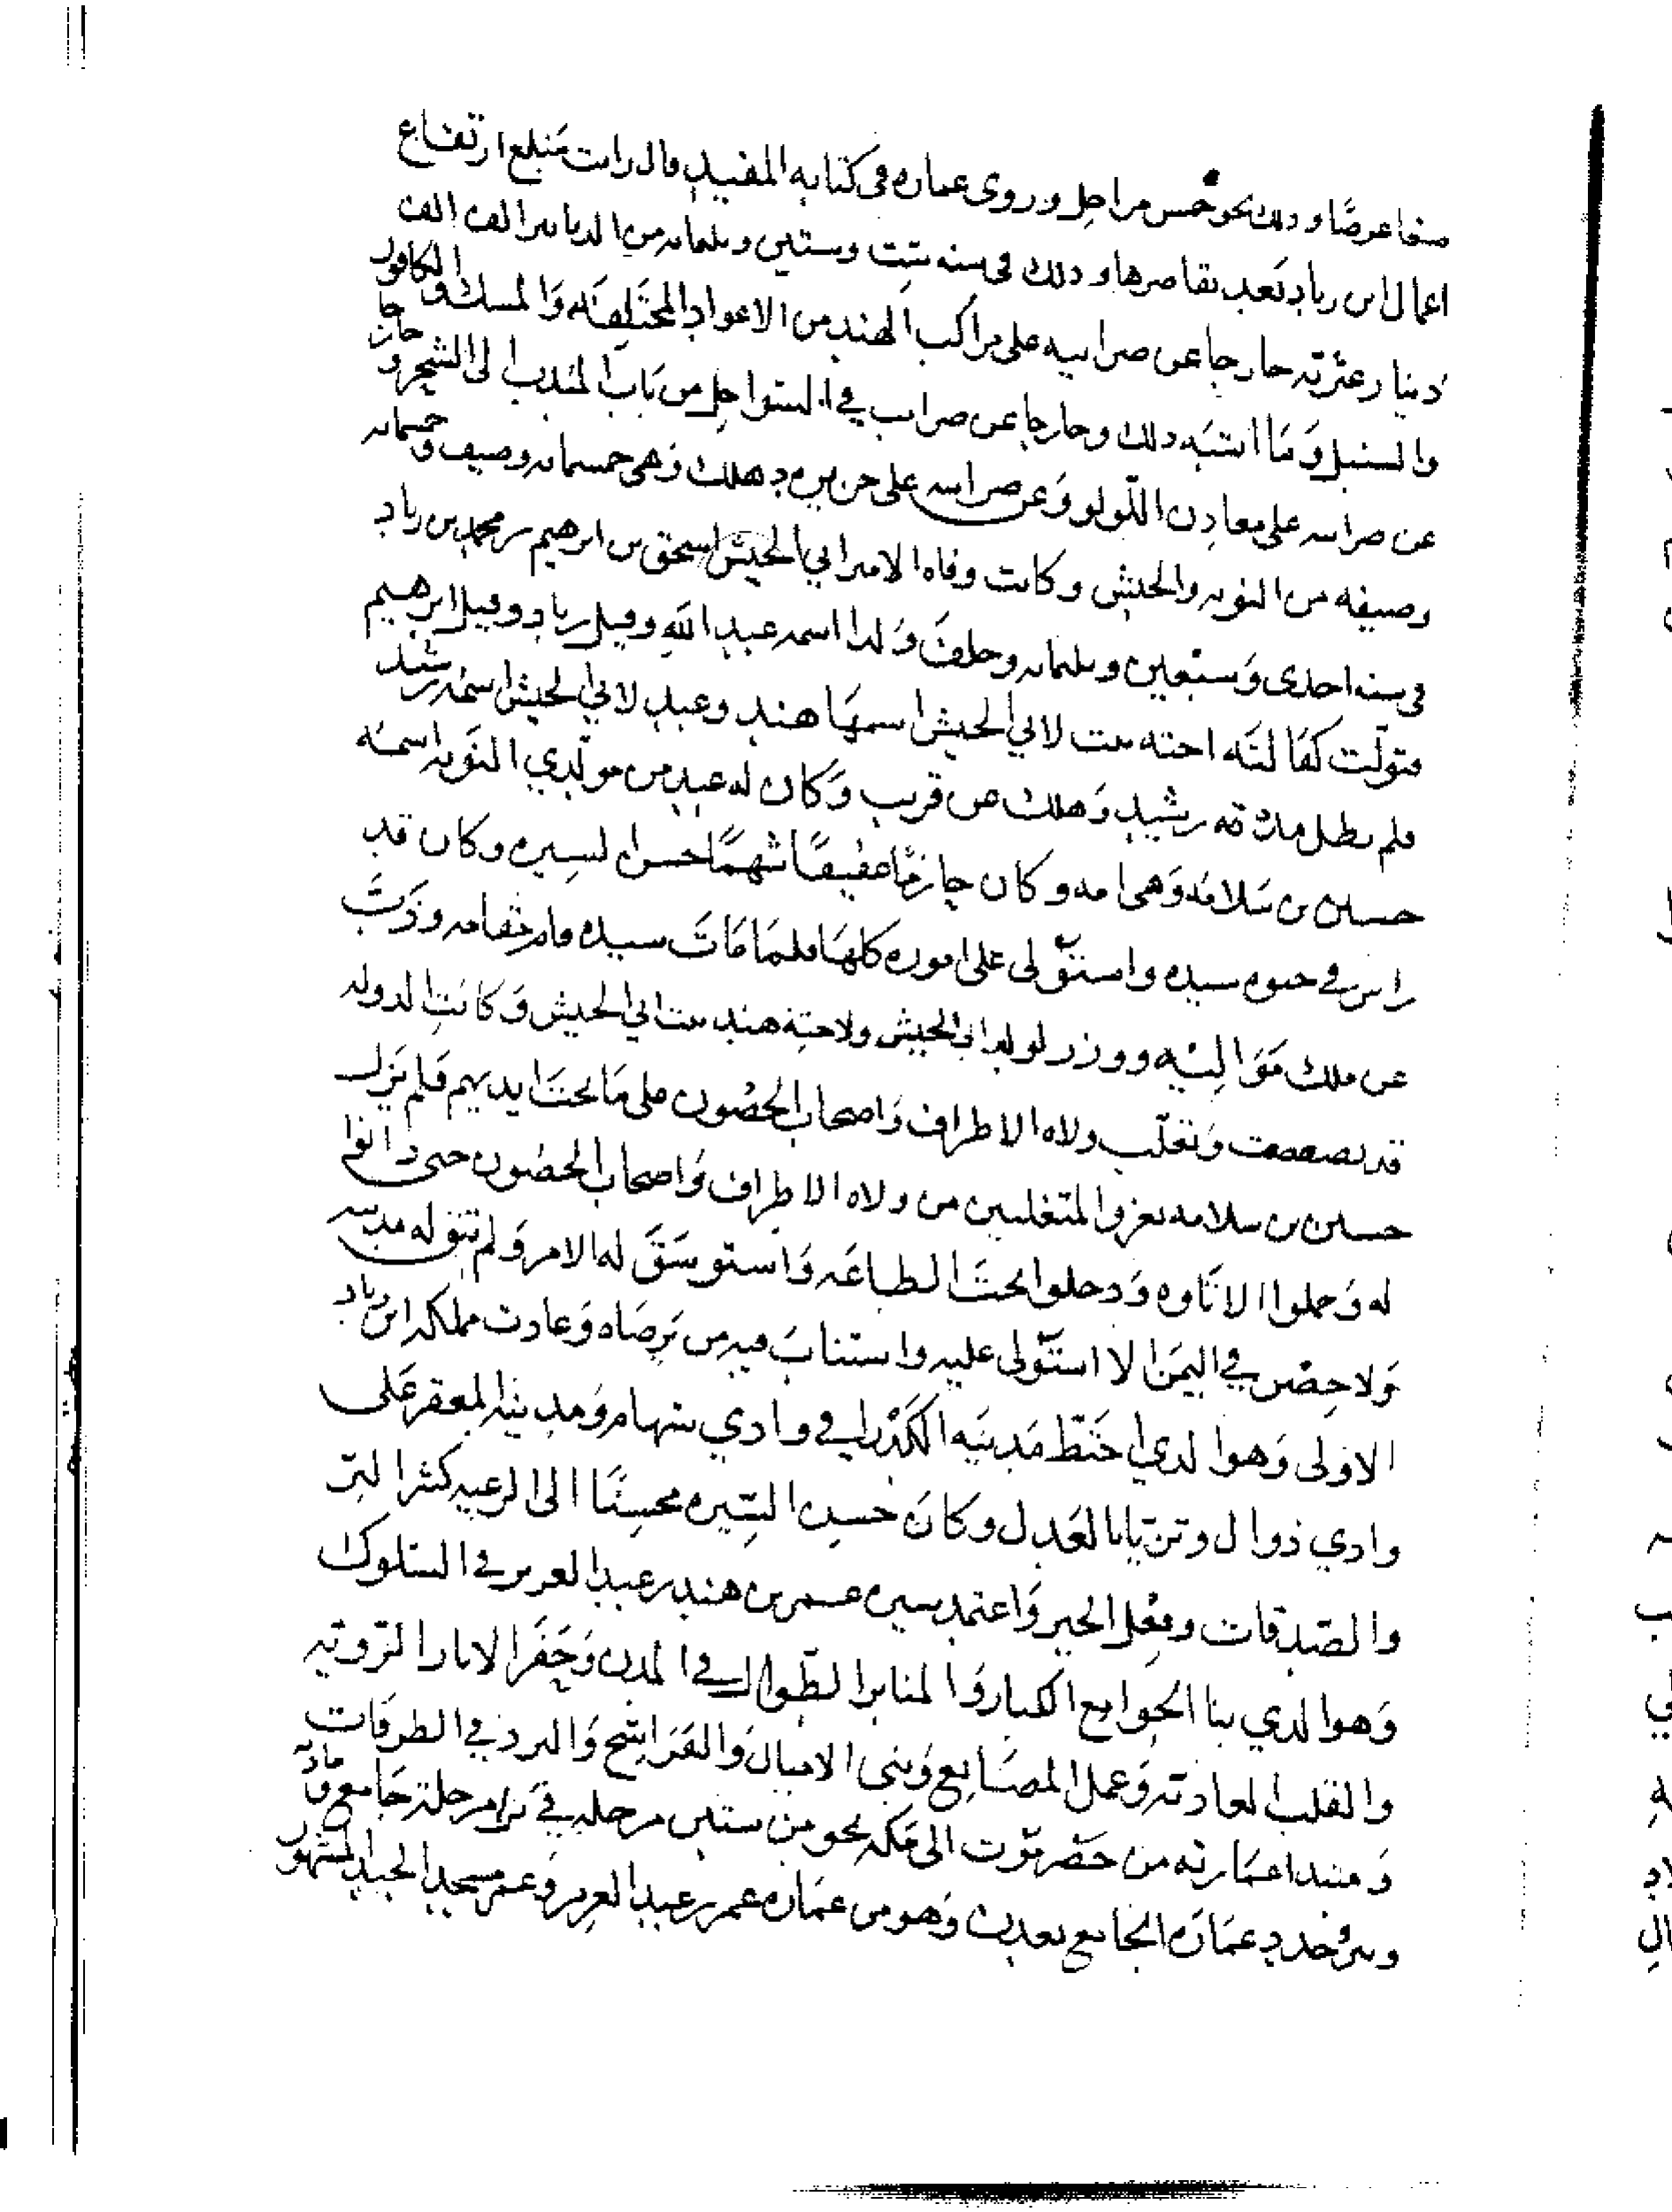 صنعا عرضا وذلك نحو خمس مراحل وروى عماره فى كتابه المفيد قال رايت مبلغ ارتفاع
اعمال ابن زياد بعد تقاصرها وذلك فى سنه ست وستين وثلثمايه من الدنانير الف الف
دينار عثريه خارجا عن ضرايبه على مراكب الهند من الاعواد المختلفه والمسك والكافور
والسنبل وما اشبه ذلك وخارجا عن ضرايب في السواحل من باب المندب الى الشحر وخارجا
عن ضرايبه على معادن اللولو وعن ضرايبه على جزيره دهلك وهى خمسمايه وصيف وخمسمايه
وصيفه من النوبه والحبش وكانت وفاه الامير ابي الجيش اسحق بن ابرهيم بن محمد بن زياد
فى سنه احدى وسبعين وثلثمايه وخلف ولدا اسمه عبد الله وقيل زياد وقيل ابرهيم
فتولت كفالته اخته بنت لابي الجيش اسمها هند وعبد لابي الجيش اسمه رشيد
فلم تطل مدته رشيد وهلك عن قريب وكان له عبد من مولدي النوبه اسمه
حسين بن سلامه وهى امه وكان حازما عفيفا شهما حسن السيره وكان قد
راس في حيوه سيده واستولى على اموره كلها فلما مات سيده قام مقامه وذب
عن ملك مواليه ووزر لولد ابي الجيش ولاخته هند بنت ابي الجيش وكانت الدوله
قد تضعضعت وتغلب ولاه الاطراف واصحاب الحصون على ما تحت ايديهم فلم يزل
حسين بن سلامه يغزو المتغلبين من ولاه الاطراف واصحاب الحصون حتى دانوا
له وحملوا الاتاوه ودخلوا تحت الطاعه واستوسق له الامر ولم تبق له مدينه
ولا حصن في اليمن الا استولى عليه واستناب فيه من يرضاه وعادت مملكه ابن زياد
الاولى وهو الذي اختط مدينه الكدرا في وادي سهام ومدينه المعقر على
وادي ذوال وتزيا بالعدل وكان حسن السيره محسنا الى الرعيه كثير البر
والصدقات وفعل الخير واعتمد سيره عمر بن عبد العزيز في السلوك
وهو الذي بنا الجوامع الكبار والمناير الطوال في المدن وحفر الابار الرويه
والقلب العاديه وعمل المصانع وبنى الاميال والفراسخ والبرد في الطرقات
ومبتدا عمارته من حضرموت الى مكه نحو من ستين مرحله في كل مرحلة جامع وماذنه
وبير وجدد عماره الجامع بعدن وهو من عماره عمر بن عبد العزيز وعمر مسجد الجند المشهور